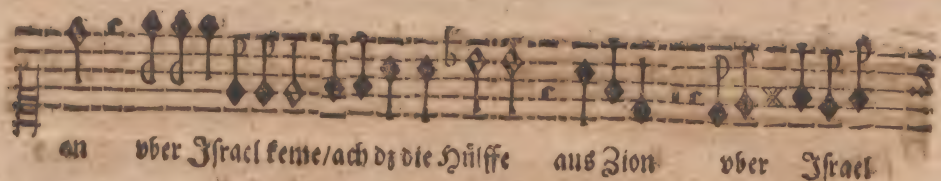 an vber Iſrael keme/ach dz die Hülffe aus Zion vber Iſrael